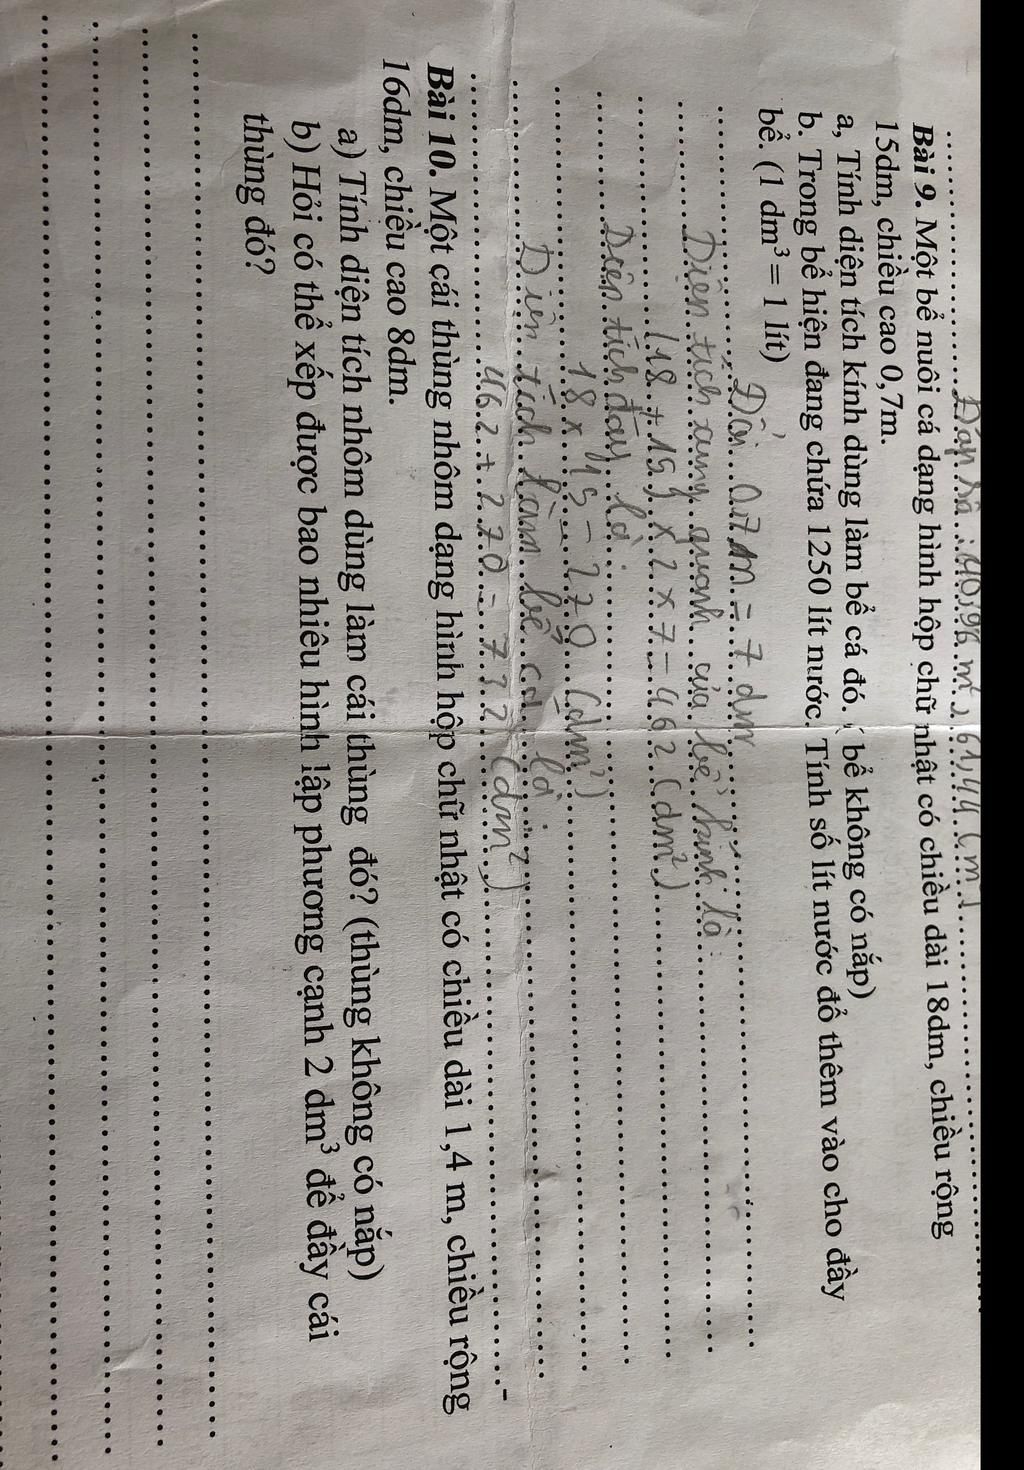 Đáp số: 40,96 m², 61,44 (m
Bài 9. Một bể nuôi cá dạng hình hộp chữ nhật có chiều dài 18dm, chiều rộng
15dm, chiều cao 0,7m.
a, Tính diện tích kính dùng làm bể cá đó. ( bể không có nắp)
b. Trong bể hiện đang chứa 1250 lít nước. Tính số lít nước đổ thêm vào cho đầy
bể. (1 dm³ = 1 lít)
Đổi 0,7 m = 7 dm
Diện tích xung quanh của bể kính là:
(18 + 15) x 2 x 7 = 462 (dm²)
Diện tích đáy là:
18 x 15 = 270 (dm²)
Diện tích làm bể cá là:
462 + 270 = 732 (dm²)
Bài 10. Một cái thùng nhôm dạng hình hộp chữ nhật có chiều dài 1,4 m, chiều rộng
16dm, chiều cao 8dm.
a) Tính diện tích nhôm dùng làm cái thùng đó? (thùng không có nắp)
b) Hỏi có thể xếp được bao nhiêu hình lập phương cạnh 2 dm³ để đầy cái
thùng đó?